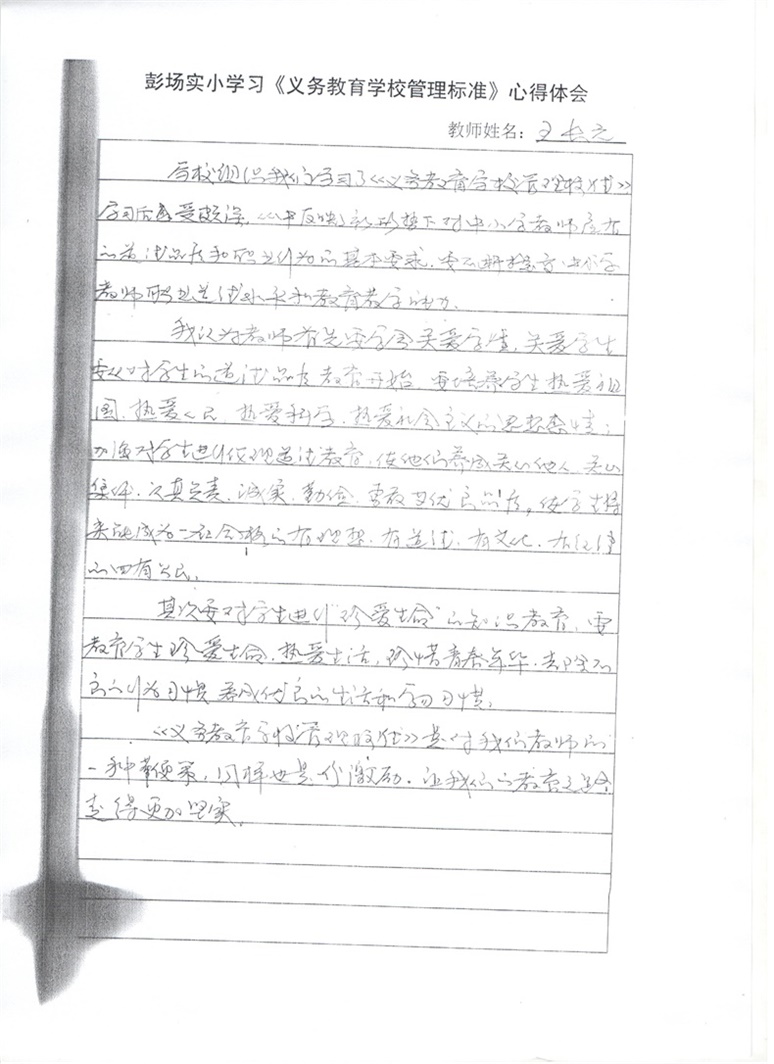 彭场实小学习《义务教育学校管理标准》心得体会
教师姓名：王长元
学校组织我们学习了《义务教育学校管理标准》
学习后感受颇深，反映新形势下对中小学教师应有
的道德品质和职业行为的基本要求，要不断提高中小学
教师职业道德水平和教育教学能力。
我认为教师首先要学会关爱学生，关爱学生
要从对学生的道德品质教育开始，要培养学生热爱祖
国、热爱人民、热爱科学、热爱社会主义的思想感情；
加强对学生进行伦理道德教育，使他们养成关心他人、关心
集体、认真负责、诚实、勤俭、勇敢等优良品质，使学生将
来能成为一名合格的有理想、有道德、有文化、有纪律
的四有公民。
其次要对学生进行“珍爱生命”的知识教育，要
教育学生珍爱生命，热爱生活，珍惜青春年华，去除不
良的行为习惯，养成优良的生活和学习习惯。
《义务教育学校管理标准》是对我们教师的
一种，同样也是份激励，让我们的教育之路
走得更加坚实。